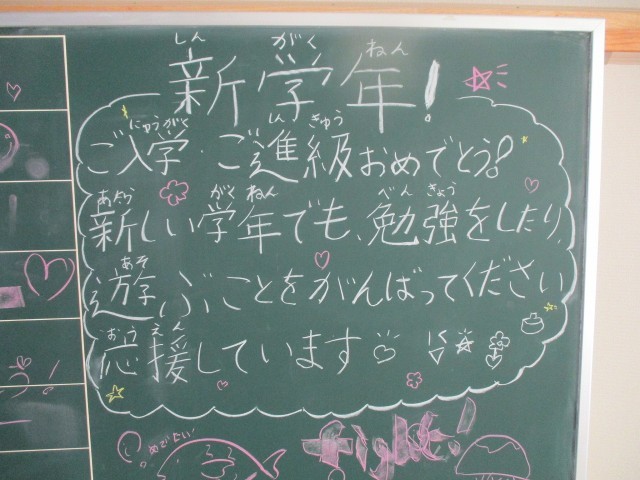 しん がく ねん
新学年!
にゅうがく しん きゅう
ご入学・ご進級おめでとう!
あたら がく ねん べん きょう
新しい学年でも、勉強をしたり、
あそ
遊ぶことをがんばってください
おう えん
応援しています
めでたい!